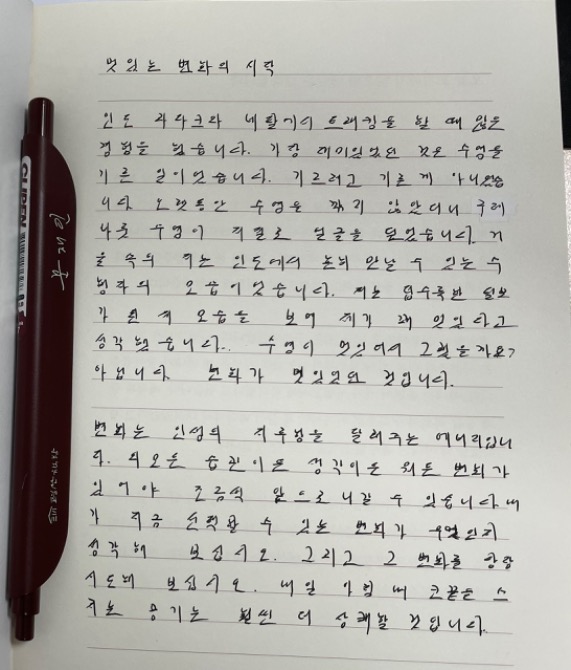 멋있는 변화의 시작
인도 라다크와 네팔에서 트래킹을 할 때 많은
경험을 했습니다. 가장 재미있었던 것은 수염을
기른 일이었습니다. 기르려고 기른 게 아니었습
니다 오랫동안 수염을 깎지 않았더니 구레
나룻 수염이 저절로 얼굴을 덮었습니다. 거
울 속의 저는 인도에서 흔히 만날 수 있는 수
행자의 모습이었습니다. 저는 덥수룩한 털보
가 된 제 모습을 보며 제가 꽤 멋있다고
생각했습니다. 수염이 멋있어서 그랬을까요?
아닙니다 변화가 멋있었던 것입니다.
변화는 인생의 지루함을 달래주는 에너지입니
다. 외모든 습관이든 생각이든 뭐든 변화가
있어야 조금씩 앞으로 나갈 수 있습니다
가 지금 선택할 수 있는 변화가 무엇인지
생각해 보십시오. 그리고 그 변화를 당장
시도해 보십시오. 내일 아침 코끝을 스
치는 공기는 훨씬 더 상쾌할 것입니다.
SLIBEN